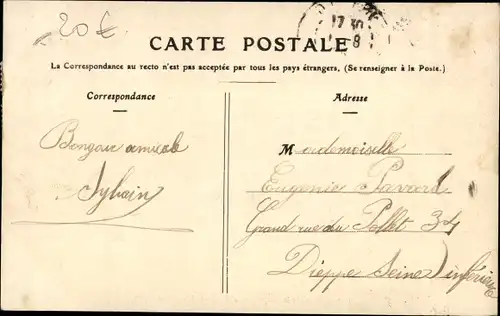 20€
17 30
8
CARTE POSTALE
La Correspondance au recto n'est pas acceptée par tous les pays étrangers. (Se renseigner à la Poste.)
Correspondance
Adresse
Bonjour amical
Sylvain
Mademoiselle
Eugenie Pavard
Grand rue du Pollet 34
Dieppe Seine inférieure